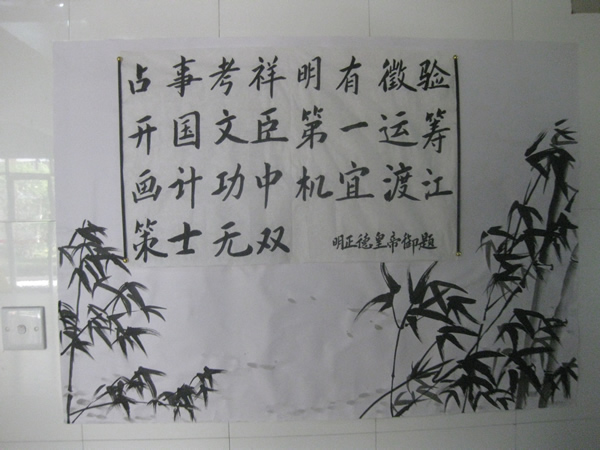 占事考祥明有徵验
开国文臣第一运筹
画计功中机宜渡江
策士无双
明正德皇帝御题